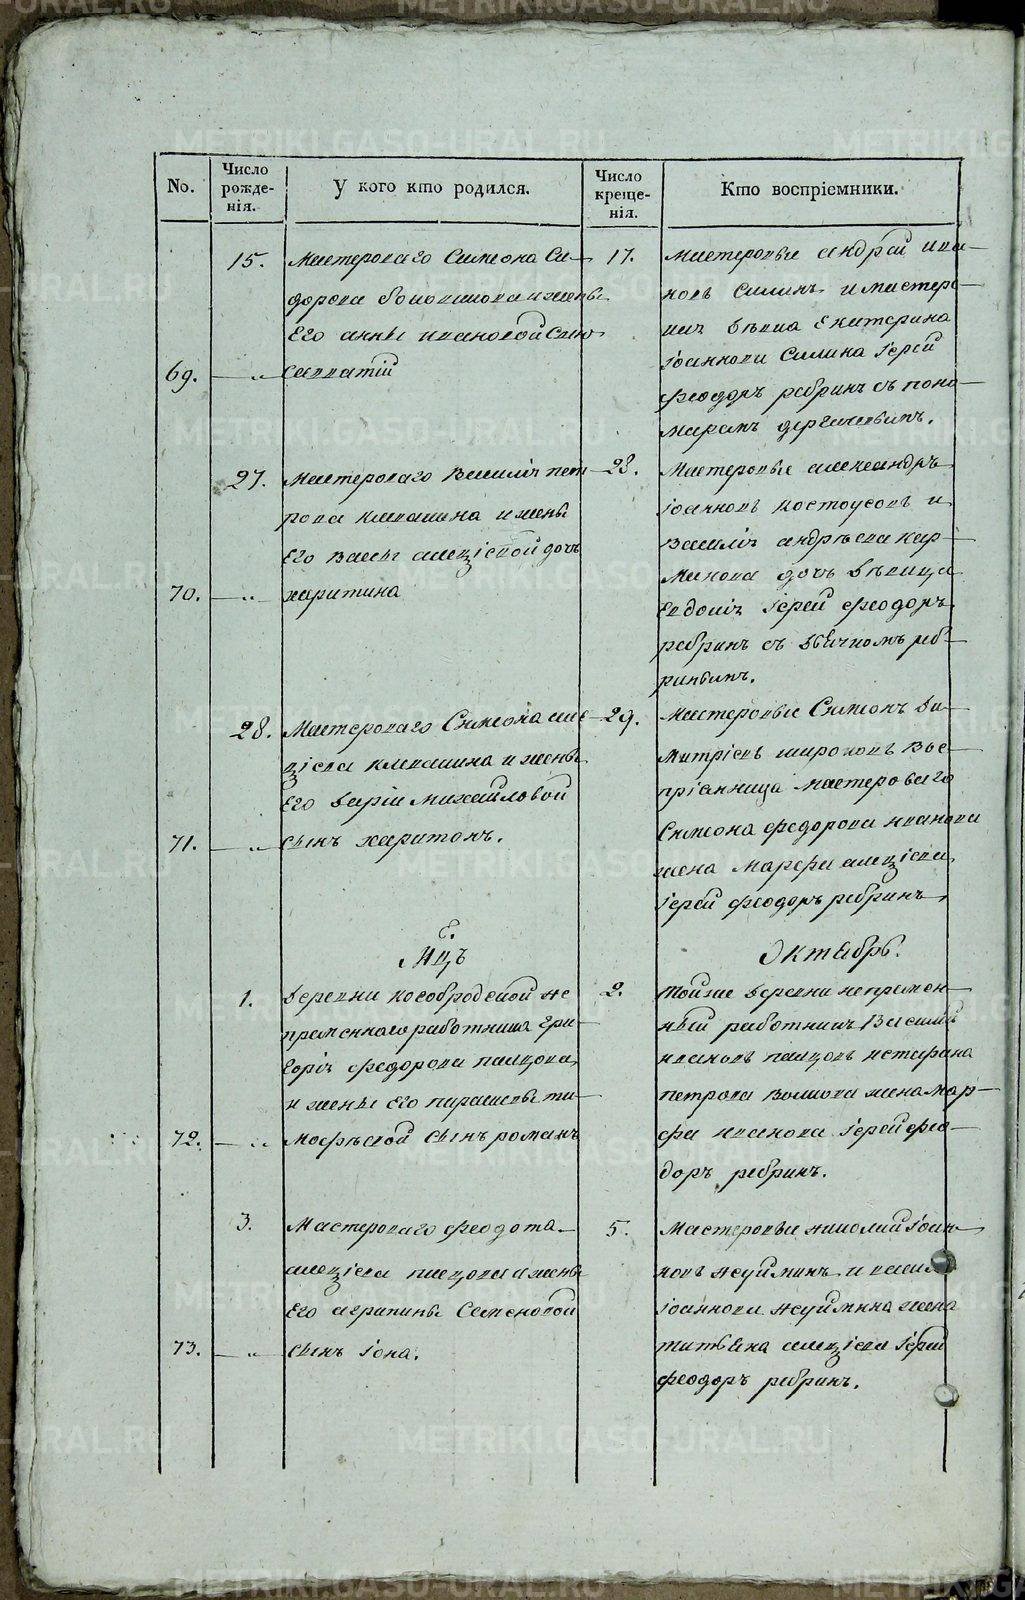 No.
Число рожде-нія.
У кого кто родился.
Число креще-нія.
Кто воспріемники.
15.
Мастероваго Симеона Си-
дорова жены
Его анны ивановой сынъ
69. — „ савватій
17.
Мастеровые андрей ива-
новъ силинъ и мастерс-
дѣвка Екатерина
Іоаннова Силина Іерей
феодоръ ребринъ съ поно-
маремъ дергачевымъ.
27.
Мастероваго Василія пет-
рова клепалина и жены
Его алеѯіевой дочь
70. — „ харитина
28.
Мастеровые александръ
іоанновъ костоусовъ и
Василія андрѣева кар-
манова дочь дѣвица
Евдокія Іерей феодоръ
ребринъ съ дьячкомъ реб-
ринымъ.
28.
Мастероваго Симеона але-
ѯіева клепалина и жены
Его Дарьи михайловой
71. — „ сынъ харитонъ.
29.
Мастеровые Симеонъ ди-
митріевъ широковъ вос-
пріемница мастероваго
Симеона федорова иванова
жена Марфа алеѯіева
Іерей феодоръ ребринъ,
Мцъ
Октябрь.
1.
Деревни кособродской не
премѣннаго работника гри-
горія федорова палцова
и жены Его параскевы ти-
72. — „ мофѣевой сынъ романъ
2.
Тойже деревни непремѣн-
ный работникъ Василій
ивановъ палцовъ истефана
петрова волкова жена мар-
фа иванова Іерей фео-
доръ ребринъ.
3.
Мастероваго феодота
алеѯіева палцова и жены
Его агрипины Семеновой
73. — „ сынъ іона.
5.
Мастеровые николай іоан-
новъ неуйминъ и
іоаннова неуймина жена
татьяна алеѯіева Іерей
феодоръ ребринъ.
METRIKI.GASO-URAL.RU